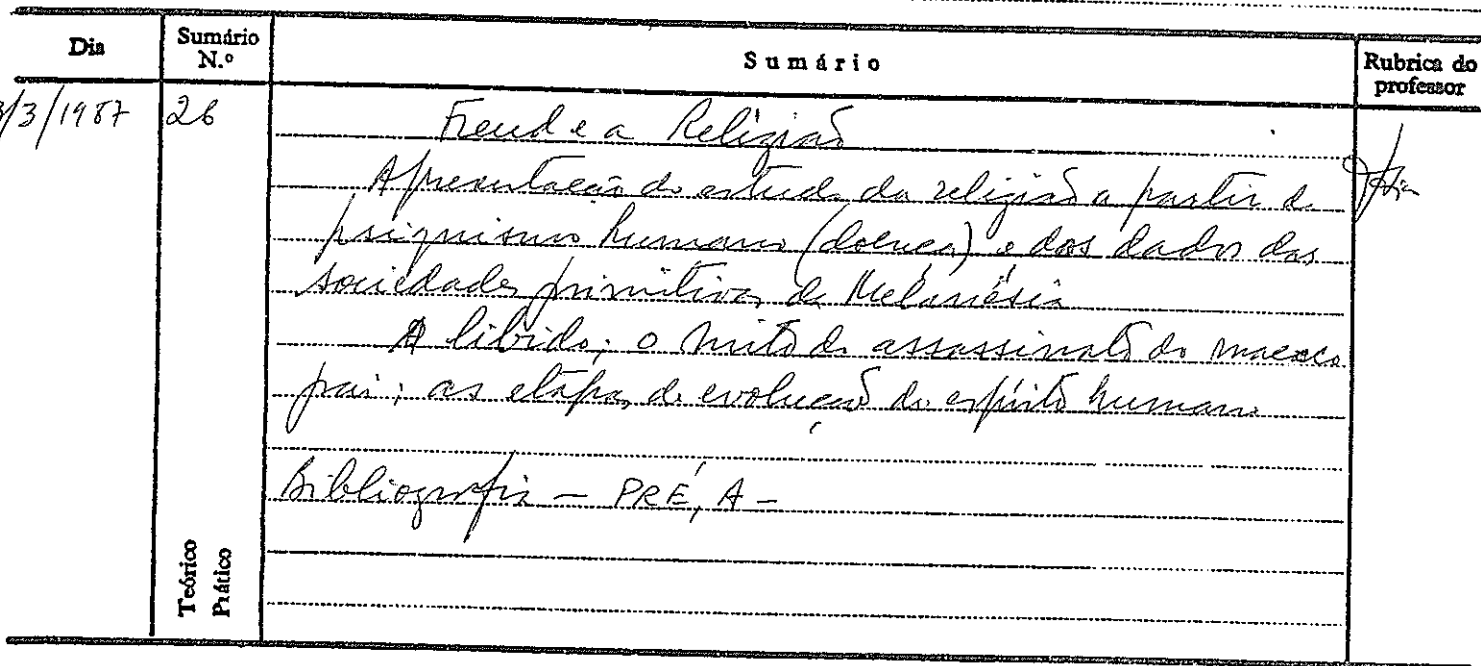 Dia Sumário N.º Sumário Rubrica do professor
3/3/1987 26 Freud e a Religião
Apresentação do estudo da religião a partir do
psiquismo humano (doença) e dos dados das
sociedades primitivas da Melanésia
A libido; o mito do assassinato do macaco
pai; as etapas de evolução do espírito humano
Bibliografia – PRÉ, A –
Teórico
Prático